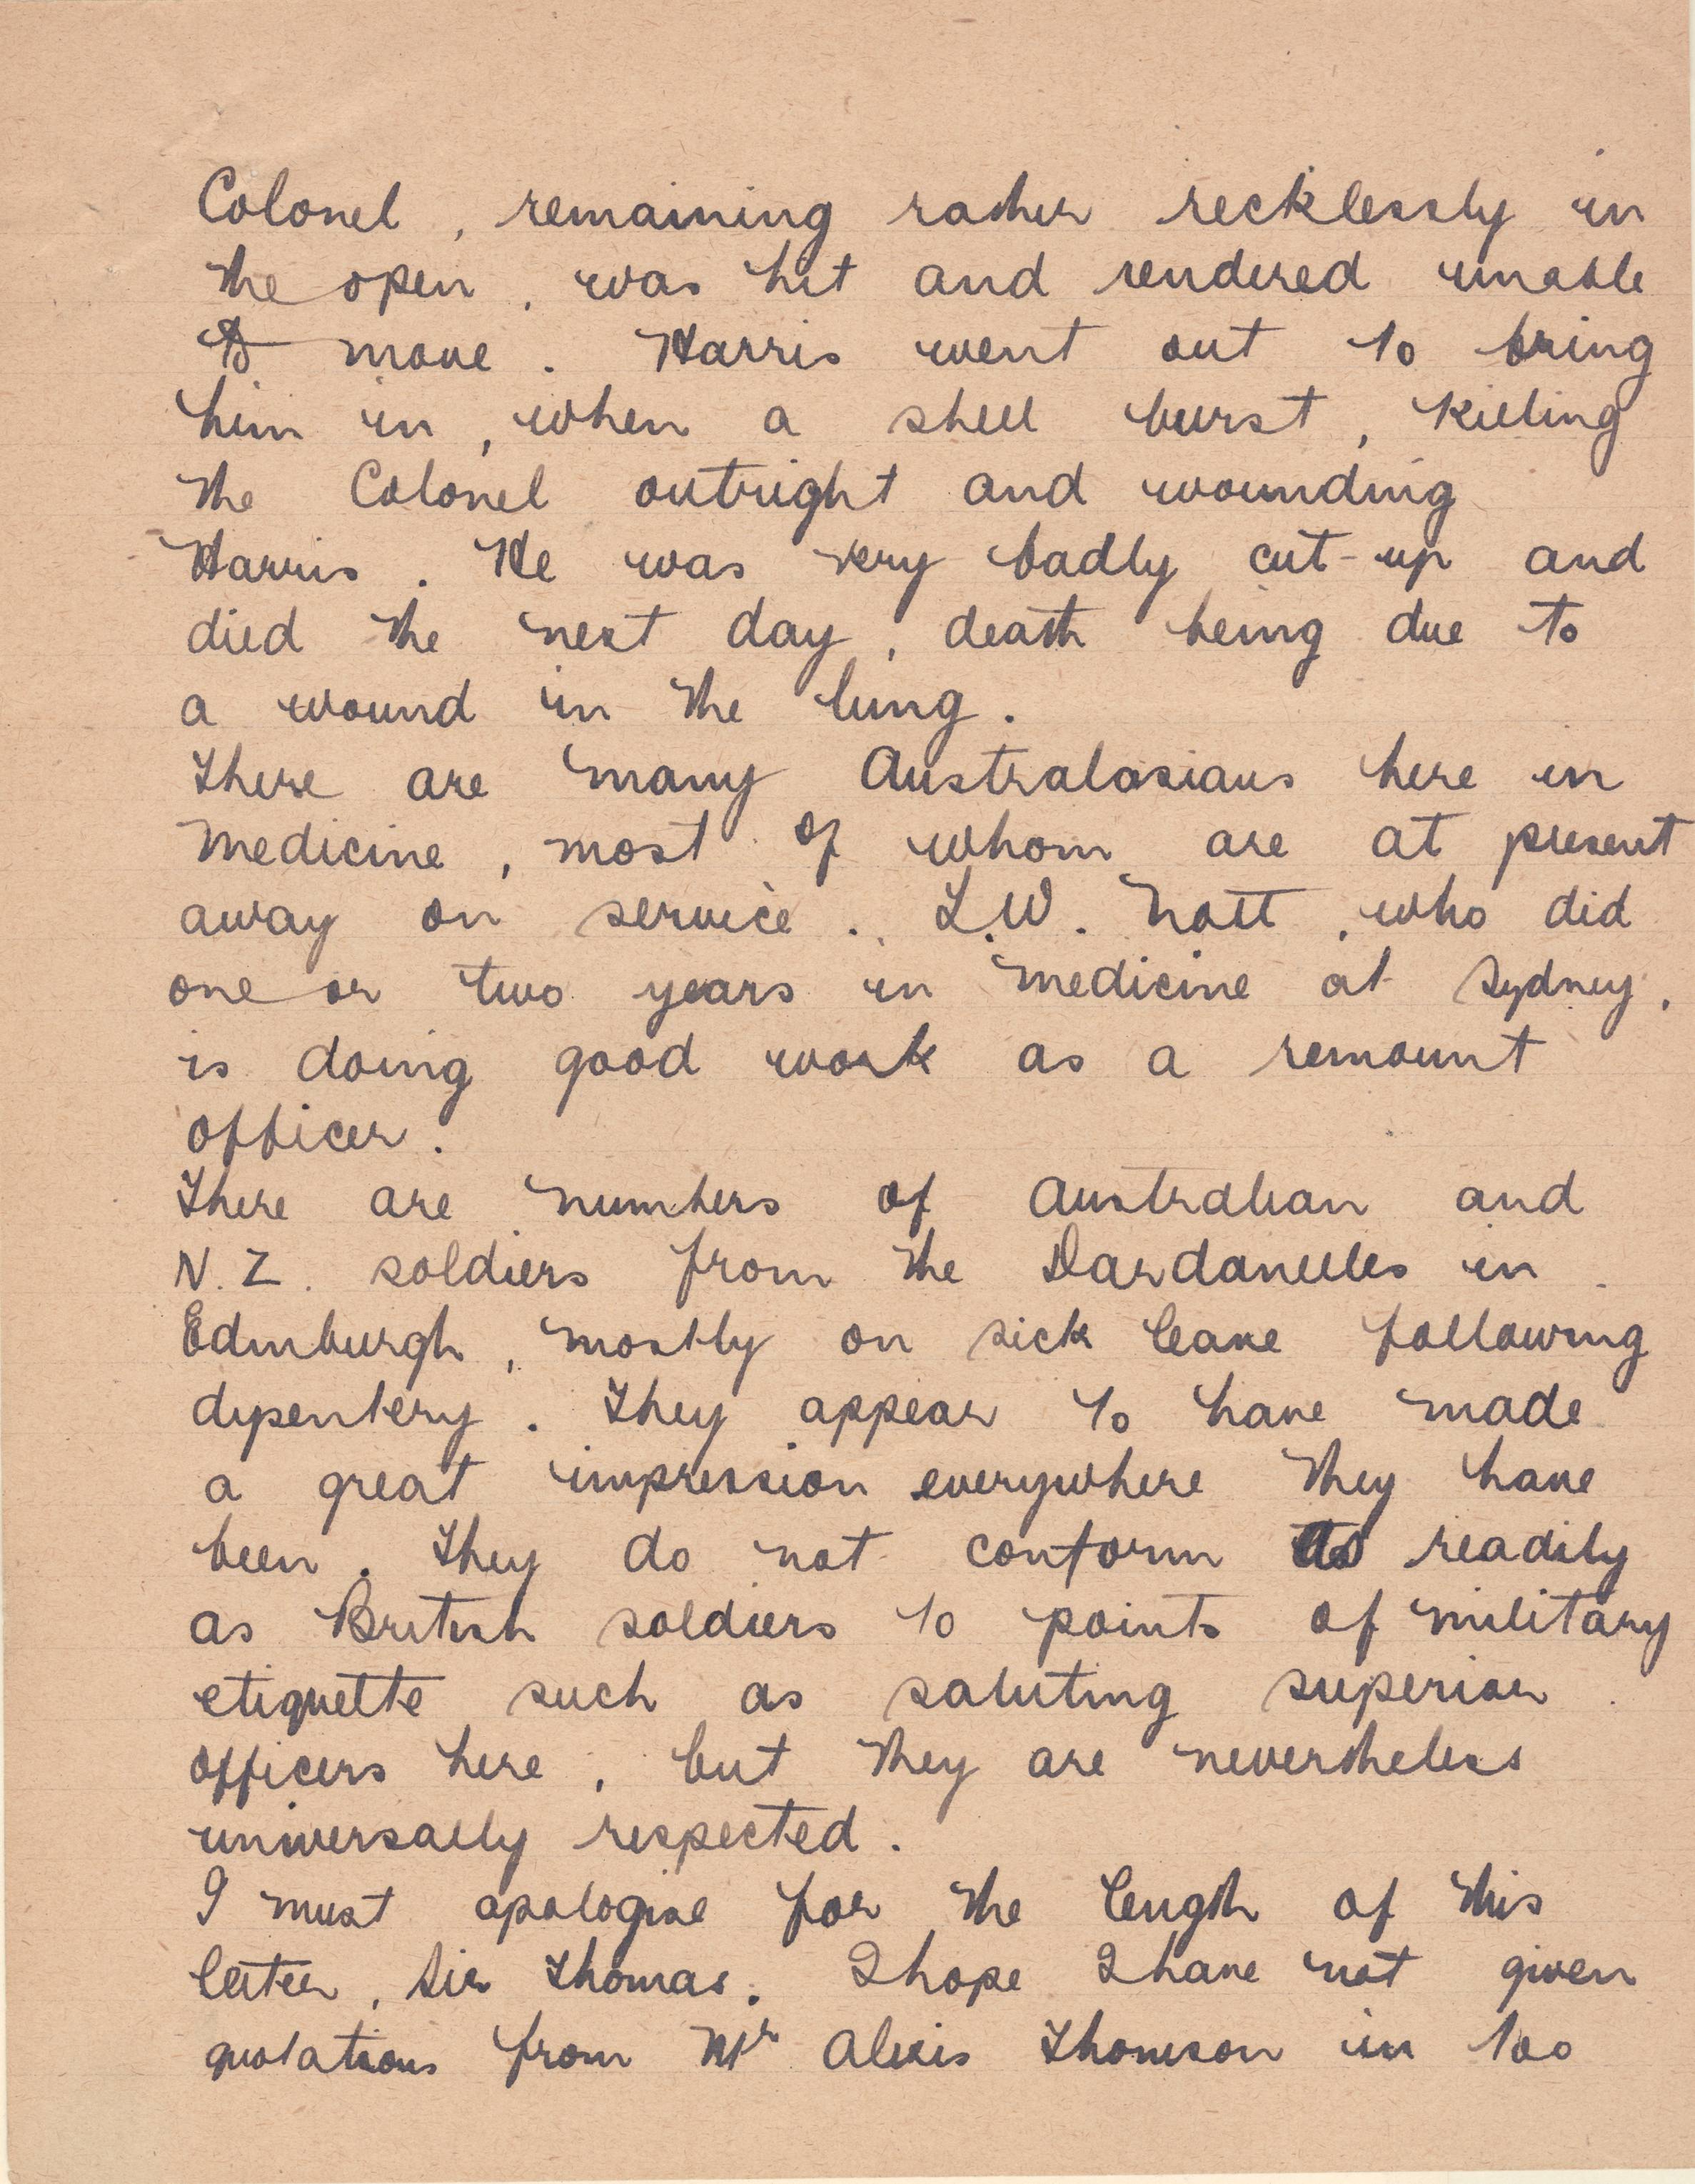 Colonel, remaining rather recklessly in
the open, was hit and rendered unable
to move. Harris went out to bring
him in, when a shell burst, killing
the Colonel outright and wounding
Harris. He was very badly cut-up and
died the next day, death being due to
a wound in the lung.
There are many Australasians here in
medicine, most of whom are at present
away on service. L.W. Nott, who did
one or two years in medicine at Sydney,
is doing good work as a remount
officer.
There are numbers of Australian and
N.Z. soldiers from the Dardanelles in
Edinburgh, mostly on sick leave following
dysentery. They appear to have made
a great impression everywhere they have
been. They do not conform as readily
as British soldiers to points of military
etiquette such as saluting superior
officers here, but they are nevertheless
universally respected.
I must apologise for the length of this
letter, Sir Thomas. I hope I have not given
quotations from Mr Alexis Thomson in too